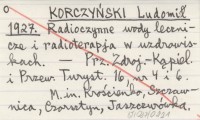 KORCZYŃSKI Ludomił
1927. Radioczynne wody leczni-
cze i radioterapja w uzdrowis-
kach. — Prz. Zdroj.-Kąpiel.
i Przew. Turyst. 16 nr 4 i 6.
M. in. Krościenko, Szczaw-
nica, Czorsztyn, Jaszczurówka.